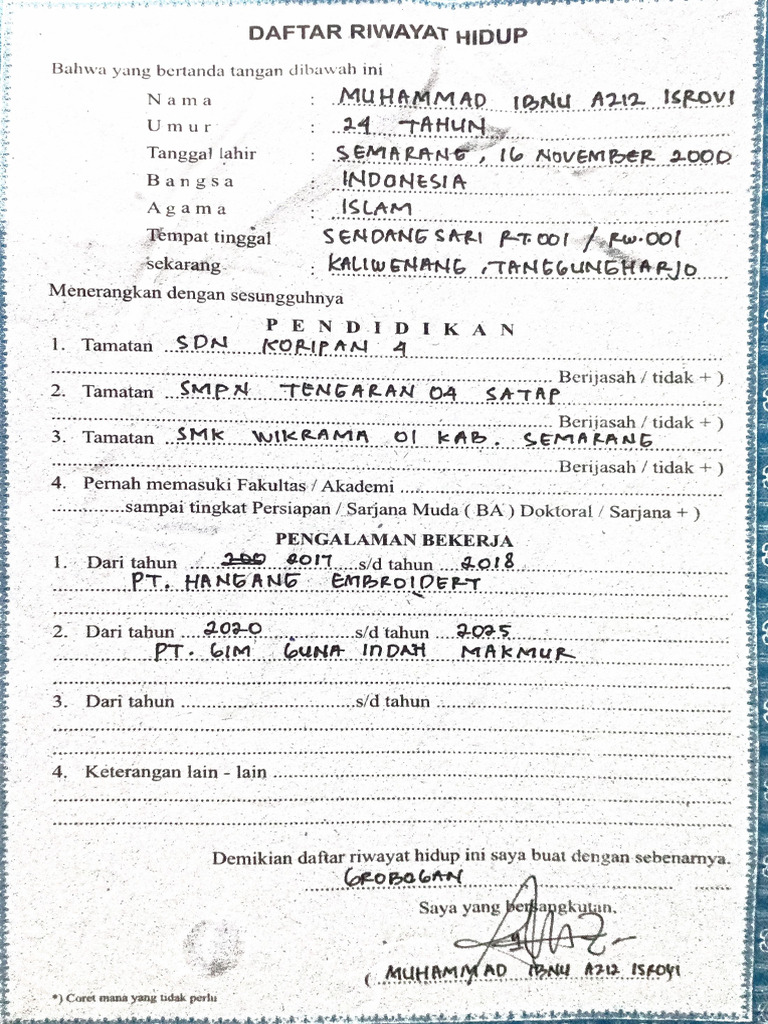 DAFTAR RIWAYAT HIDUP
Bahwa yang bertanda tangan dibawah ini
Nama : MUHAMMAD IBNU AZIZ ISROVI
Umur : 24 TAHUN
Tanggal lahir : SEMARANG, 16 NOVEMBER 2000
Bangsa : INDONESIA
Agama : ISLAM
Tempat tinggal SENDANG SARI RT.001 / RW.001
sekarang : KALIWENANG, TANGGUNGHARJO
Menerangkan dengan sesungguhnya
PENDIDIKAN
1. Tamatan SDN KORIPAN 4
Berijasah / tidak + )
2. Tamatan SMPN TENGARAN 04 SATAP
Berijasah / tidak + )
3. Tamatan SMK WIKRAMA 01 KAB. SEMARANG
Berijasah / tidak + )
4. Pernah memasuki Fakultas / Akademi
sampai tingkat Persiapan / Sarjana Muda ( BA ) Doktoral / Sarjana + )
PENGALAMAN BEKERJA
1. Dari tahun 2017 s/d tahun 2018
PT. HANGANG EMBROIDERT
2. Dari tahun 2020 s/d tahun 2025
PT. GIM GUNA INDAH MAKMUR
3. Dari tahun s/d tahun
4. Keterangan lain - lain
Demikian daftar riwayat hidup ini saya buat dengan sebenarnya.
GROBOGAN
Saya yang bersangkutan,
( MUHAMMAD IBNU AZIZ ISROVI
*) Coret mana yang tidak perlu